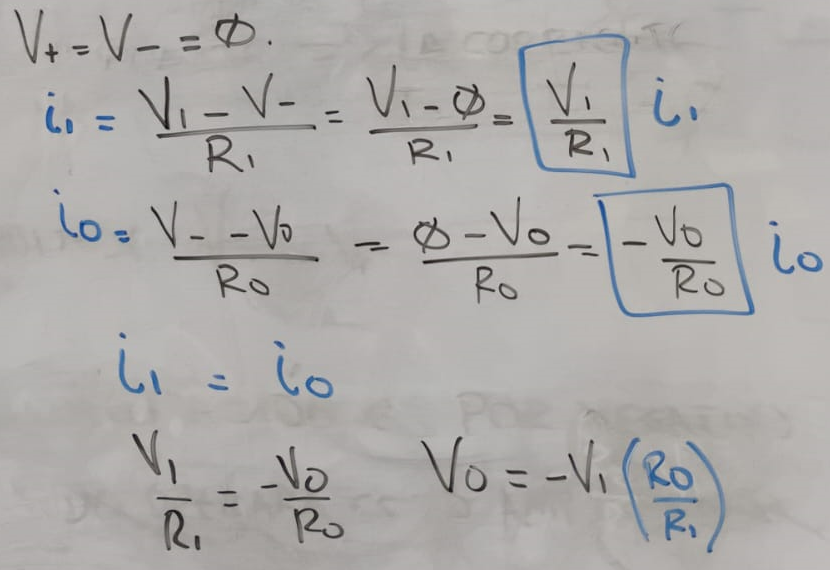 V+ = V- = Ø.
i1 = (V1 - V-)/R1 = (V1 - Ø)/R1 = V1/R1 i1
i0 = (V- - V0)/R0 = (Ø - V0)/R0 = -V0/R0 i0
i1 = i0
V1/R1 = -V0/R0 V0 = -V1 (R0/R1)